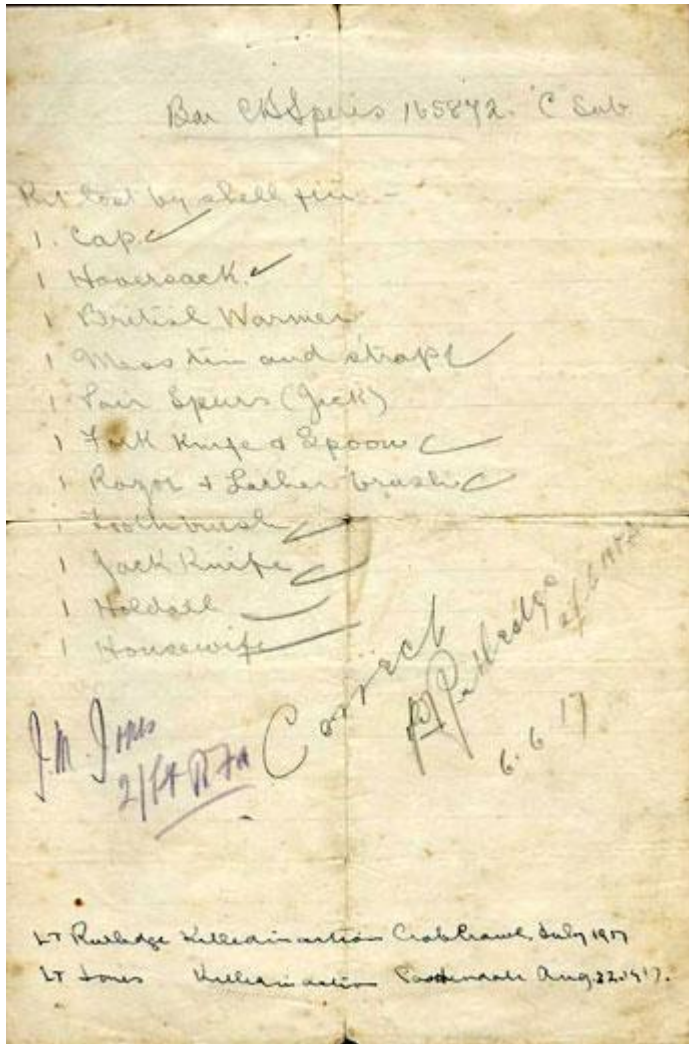 Bar C H Speers 165872. 'C Sub
Kit lost by shell fire:-
1. Cap.
1 Haversack.
1 British Warmer
1 Mess tin and strap
1 Pair Spurs (Jack)
1 Fork Knife & Spoon
1 Razor & Lather brush
1 Toothbrush
1 Jack Knife
1 Holdall
1 Housewife
Correct
Rutledge
J.M. Jones
2/Lt RFA
6.6.17
LT Rutledge Killed in action Crab Crawl, July 1917
LT Jones Killed in action Passendale Aug. 22. 1917.